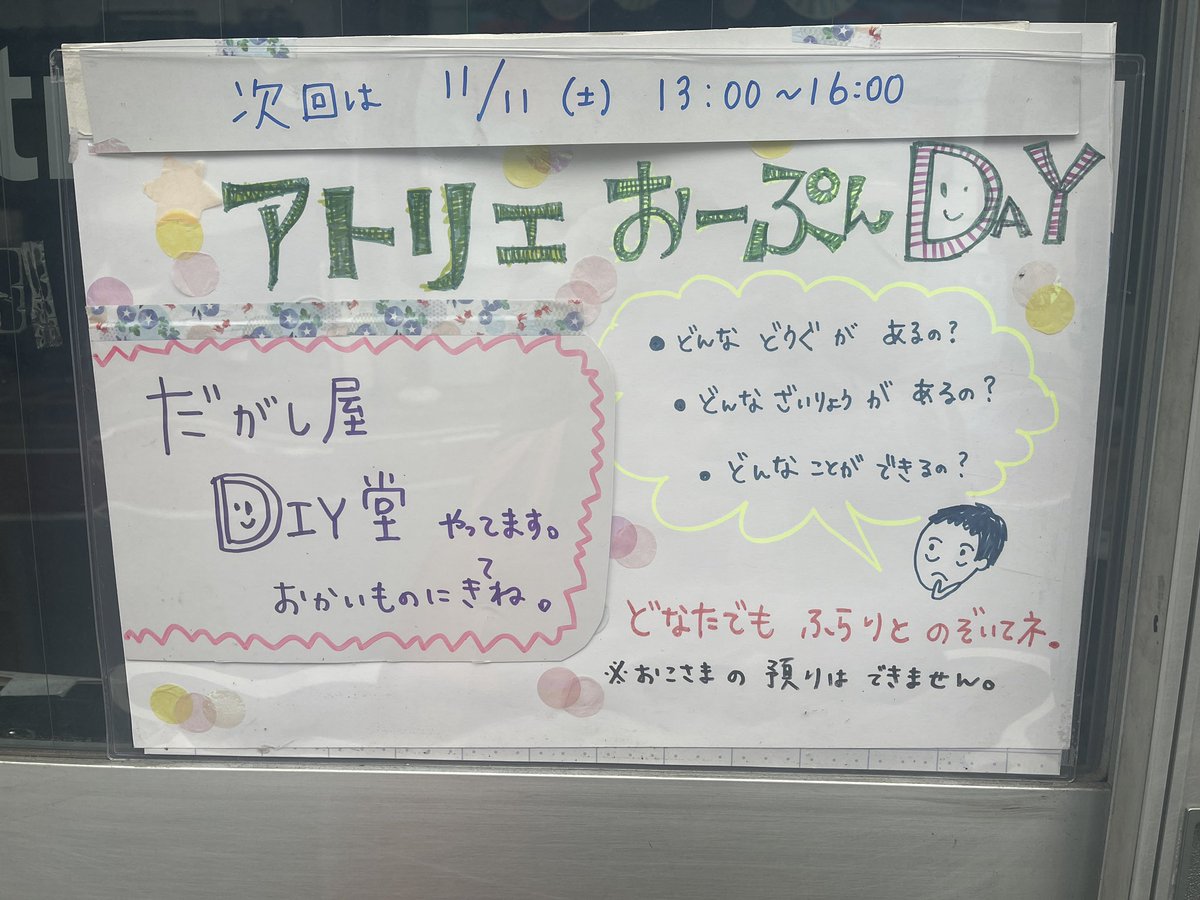 次回は 11/11 (土) 13:00~16:00
アトリエ おーぷん DAY
だがし屋
DIY堂 やってます。
おかいものにきてね。
• どんな どうぐ が あるの?
• どんな ざいりょう が あるの?
• どんな ことが できるの?
どなたでも ふらりと のぞいてネ。
※おこさまの 預りは できません。